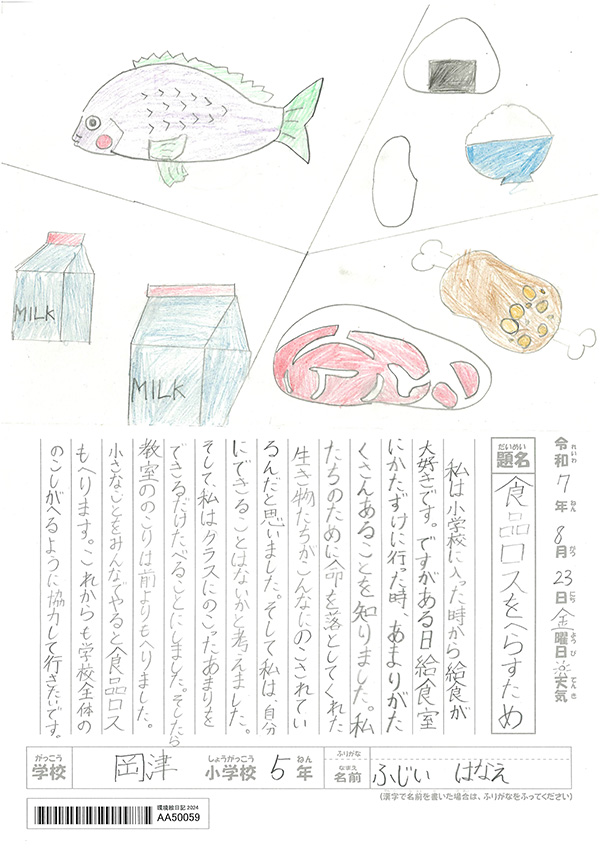 MILK
MILK
令和7年8月23日金曜日天気
れいわ ねん がつ にち ようび てんき
だいめい
題名
食品ロスをへらすため
私は小学校に入った時から給食が
大好きです。ですがある日給食室
にかたずけに行った時、あまりがた
くさんあることを知りました。私
たちのために命を落としてくれた
生き物たちがこんなにのこされてい
るんだと思いました。そして私は、自分
にできることはないかと考えました。
そして、私はクラスにのこったあまりを
できるだけたべることにしました。そしたら
教室ののこりは前よりもへりました。
小さなことをみんなでやると食品ロス
もへります。これからも学校全体の
のこしがへるように協力して行きたいです。
がっこう
学校
岡津
しょうがっこう
小学校
5
ねん
年
ふりがな
なまえ
名前
ふじい はなえ
(漢字で名前を書いた場合は、ふりがなをふってください)
環境絵日記 2024
AA50059